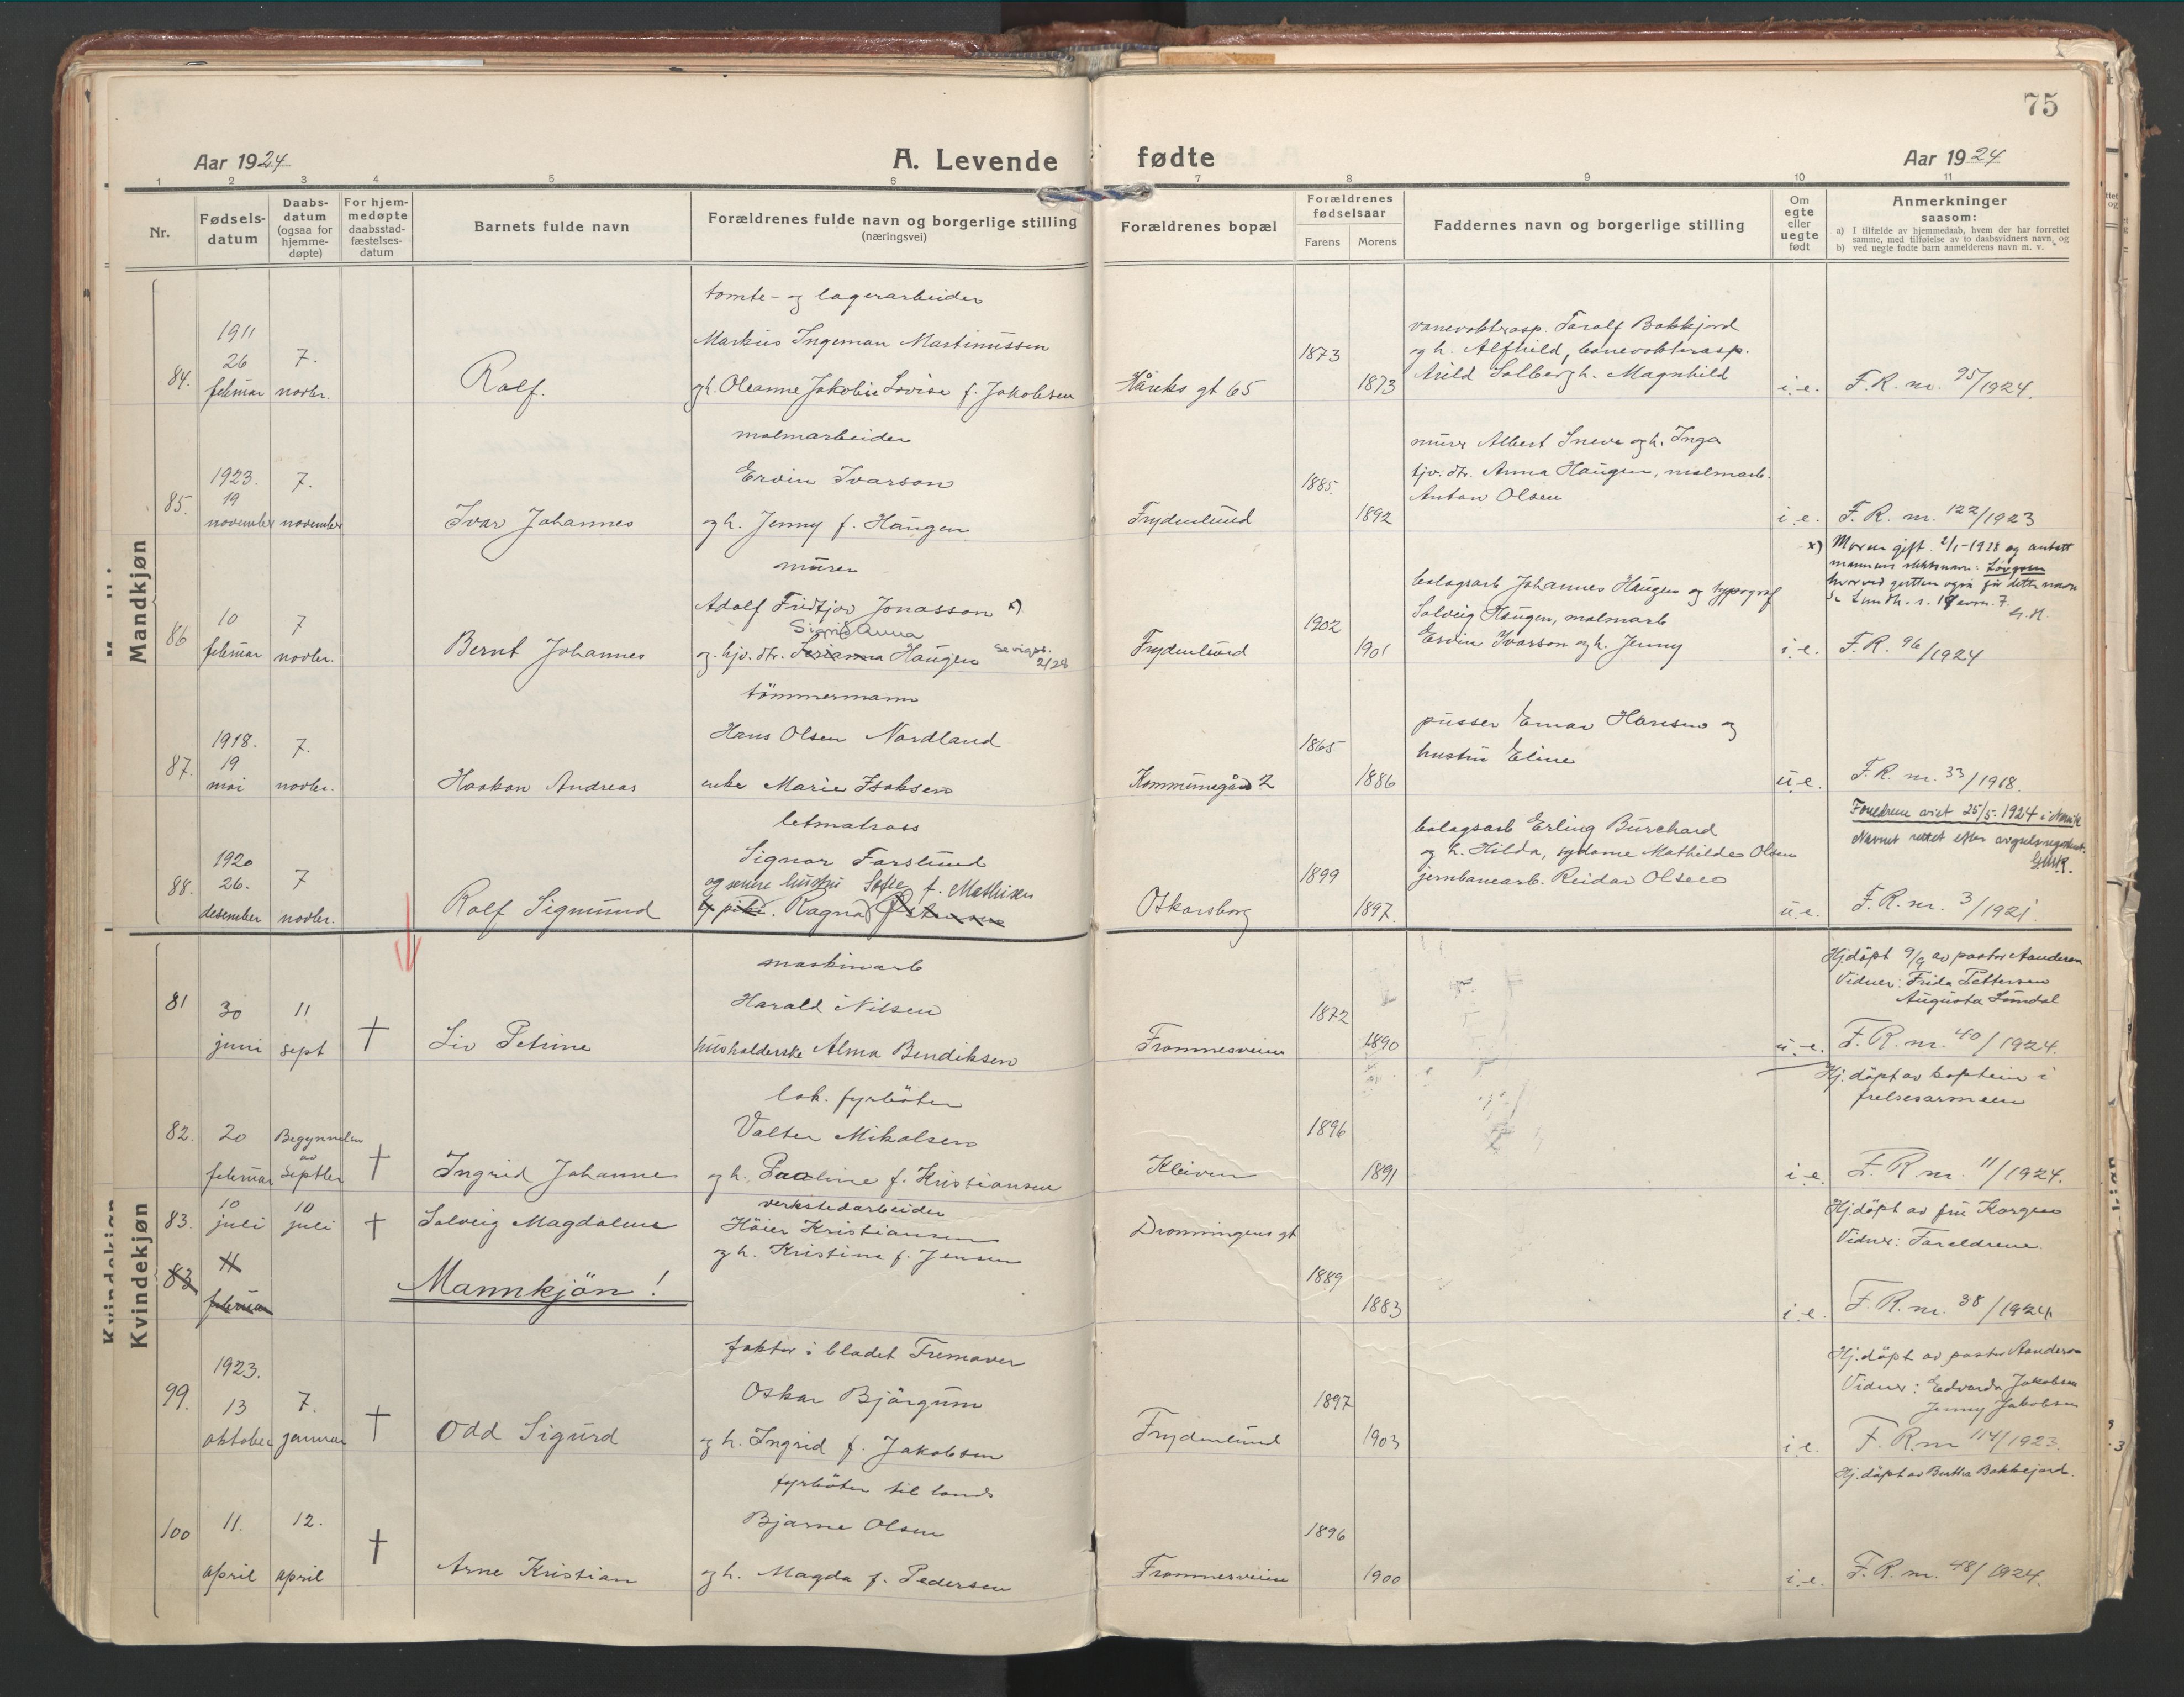 75
Aar 1924
A. Levende fødte
Aar 1924
1 2 3 4 5 6 7 8 9 10 11
Nr.
Fødsels-
datum
Daabs-
datum
(ogsaa for
hjemme-
døpte)
For hjem-
medøpte
daabsstad-
fæstelses-
datum
Barnets fulde navn
Forældrenes fulde navn og borgerlige stilling
(næringsvei)
Forældrenes bopæl
Forældrenes
fødselsaar
Farens
Morens
Faddernes navn og borgerlige stilling
Om
egte
eller
uegte
født
Anmerkninger
saasom:
a) I tilfælde av hjemmedaab, hvem der har forrettet
samme, med tilføielse av to daabsvidners navn, og
b) ved uegte fødte barn anmelderens navn m. v.
Mandkjøn
84.
1911
26
februar
7.
novbr.
Rolf.
tomte- og lagerarbeider
Markus Ingeman Martinussen
og h. Oleanne Jakobie Lovise f. Jakobsen
Håreks gt 65
1873
1873
Taralf Bakkjord
og h. Alfhild, banevokterasp.
Arild Solberg h. Magnhild
i.e.
F.R. nr. 95/1924.
85.
1923.
19
november
7.
november
Ivar Johannes
malmarbeider
Ervin Ivarson
og h. Jenny f. Haugen
Frydenlund
1885.
1892
murer Albert Sneve og h. Inga
tjv. dtr. Anna Haugen, malmarb.
Anton Olsen
i.e.
F. R. nr. 122/1923
86
10
februar
7
novbr.
Bernt Johannes
murer
Adolf Fridtjov Jonasson x)
Sigrid Anna
og hjv. dtr. Haugen
2/28
Frydenlund
1902
1901
bolagsarb Johannes Haugen og typograf
Solveig Haugen, malmarb
Ervin Ivarson og h. Jenny
i.e.
x) Moren gift 2/1-1928 og antatt
mannens slektsnavn:
F.R. 96/1924
87.
1918.
19
mai
7.
novbr.
Haakon Andreas
tömmermann
Hans Olsen Nordland
enke Marie Isaksen
Kommunegård 2
1865
1886
pusser Einar Hansen og
hustru Eline
u.e.
F.R. nr. 33/1918.
88.
1920
26.
desember
7
novbr.
Rolf Sigmund
letmatros
Signar Forslund
og senere hustru Sofie f. Mathisen
pike. Ragna
Oskarsborg
1899
1897.
bolagsarb Erling Burchard
og h. Hilda, sydame Mathilde Olsen
jernbanearb. Reidar Olsen
u.e.
Foreldrene viet 25/5-1924 i Narvik
Navnet rettet efter
F.R. nr. 3/1921.
Kvindekjøn
81
30
juni
11
sept
†
Liv Petrine
maskinarb
Harald Nilsen
husholderske Alma Bendiksen
Frammesveien
1872
1890
u.e.
Hj.döpt 9/9 av pastor Aandersen
Vidner: Frida Pettersen
Augusta Sundal
F.R. nr. 40/1924.
82.
20
februar
Begynnelsen
av
Septber
†
Ingrid Johanne
lok. fyrböter
Valter Mikalsen
og h. Pauline f. Kristiansen
Kleiven
1896
1891
i.e.
Hj. döpt av kaptein i
frelsesarmeen
F.R. nr. 11/1924.
83.
10
juli
10
juli
†
Solveig Magdalene
verkstedarbeider
Höier Kristiansen
og h. Kristine f. Jensen
Dronningens gt
1889
1883
i.e.
Hj.döpt av fru Korgen
Vidner: Foreldrene.
F.R. nr. 38/1924
83
11
februar
Mannkjön!
99.
1923.
13
oktober
7.
januar
†
Odd Sigurd
faktor i bladet Fremover
Oskar Bjørgum
og h. Ingrid f. Jakobsen
Frydenlund
1897
1903
i.e.
Hj.döpt av pastor Aandersen
Vidner: Edvarda Jakobsen
Jenny Jakobsen
F.R. nr 114/1923.
100
11.
april
12.
april
†
Arne Kristian
fyrböter til lands
Bjarne Olsen
og h. Magda f. Pedersen
Frammesveien
1896
1900
i.e.
Hj.döpt av Bertha Bakkejord.
F.R. nr. 48/1924.